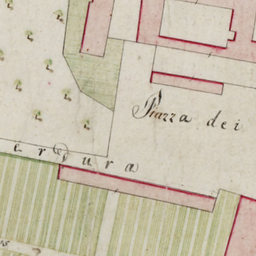 Piazza dei
erpura